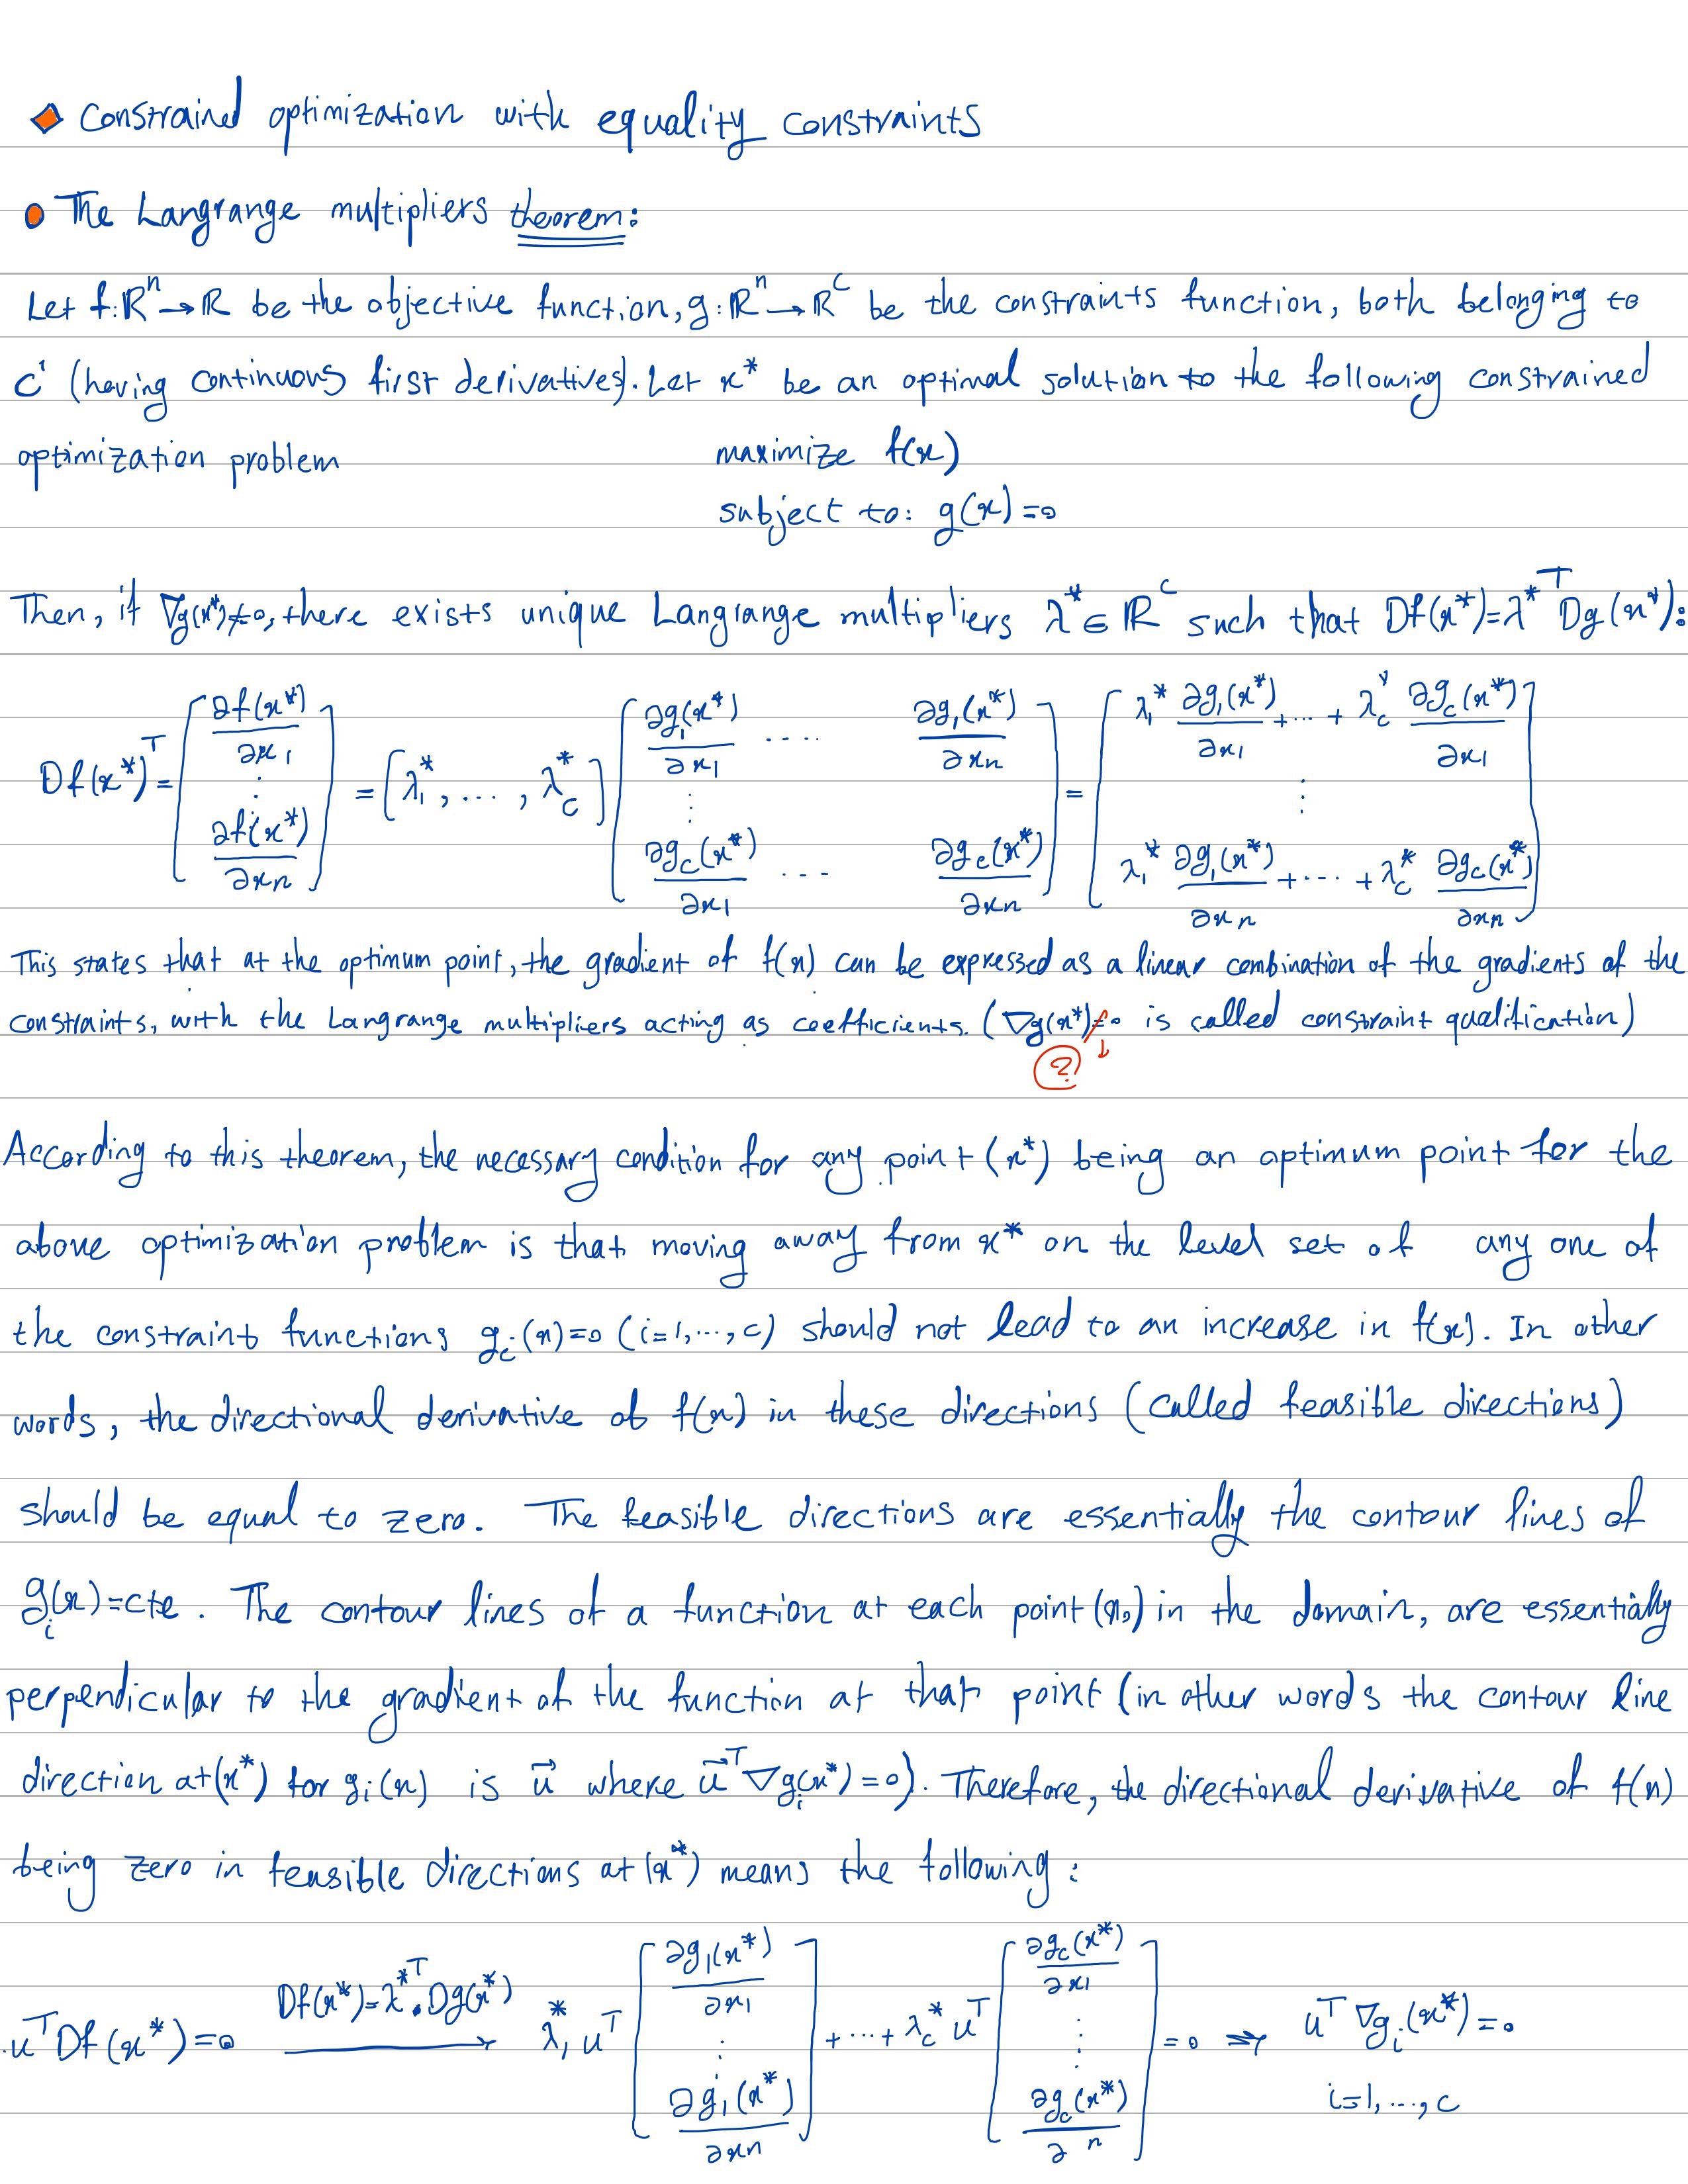 Constrained optimization with equality constraints
The Langrange multipliers theorem:
Let f: ℝⁿ → ℝ be the objective function, g: ℝⁿ → ℝᶜ be the constraints function, both belonging to
C¹ (having continuous first derivatives). Let x* be an optimal solution to the following constrained
optimization problem maximize f(x)
subject to: g(x)=0
Then, if ∇g(x*)≠0, there exists unique Langrange multipliers λ* ∈ ℝᶜ such that Df(x*)=λ*ᵀ Dg(x*):
Df(x*)ᵀ = [∂f(x*)/∂x₁ ⋮ ∂f(x*)/∂xₙ] = [λ₁*, ..., λ_c*] [∂g₁(x*)/∂x₁ .... ∂g₁(x*)/∂xₙ ⋮ ∂g_c(x*)/∂x₁ ... ∂g_c(x*)/∂xₙ] = [λ₁* ∂g₁(x*)/∂x₁ + ... + λ_c* ∂g_c(x*)/∂x₁ ⋮ λ₁* ∂g₁(x*)/∂xₙ + ... + λ_c* ∂g_c(x*)/∂xₙ]
This states that at the optimum point, the gradient of f(x) can be expressed as a linear combination of the gradients of the
constraints, with the Langrange multipliers acting as coefficients. (∇g(x*)≠0 is called constraint qualification)
?
According to this theorem, the necessary condition for any point (x*) being an optimum point for the
above optimization problem is that moving away from x* on the level set of any one of
the constraint functions gᵢ(x)=0 (i=1,...,c) should not lead to an increase in f(x). In other
words, the directional derivative of f(x) in these directions (called feasible directions)
should be equal to zero. The feasible directions are essentially the contour lines of
gᵢ(x)=cte. The contour lines of a function at each point (x₀) in the domain, are essentially
perpendicular to the gradient of the function at that point (in other words the contour line
direction at (x*) for gᵢ(x) is u⃗ where u⃗ᵀ ∇gᵢ(x*)=0). Therefore, the directional derivative of f(x)
being zero in feasible directions at (x*) means the following:
uᵀDf(x*)=0 Df(x*)=λ*ᵀ.Dg(x*) → λ₁* uᵀ [∂g₁(x*)/∂x₁ ⋮ ∂g₁(x*)/∂xₙ] + ... + λ_c* uᵀ [∂g_c(x*)/∂x₁ ⋮ ∂g_c(x*)/∂ n] = 0 ⇒ uᵀ ∇gᵢ(x*)=0
i=1, ..., c